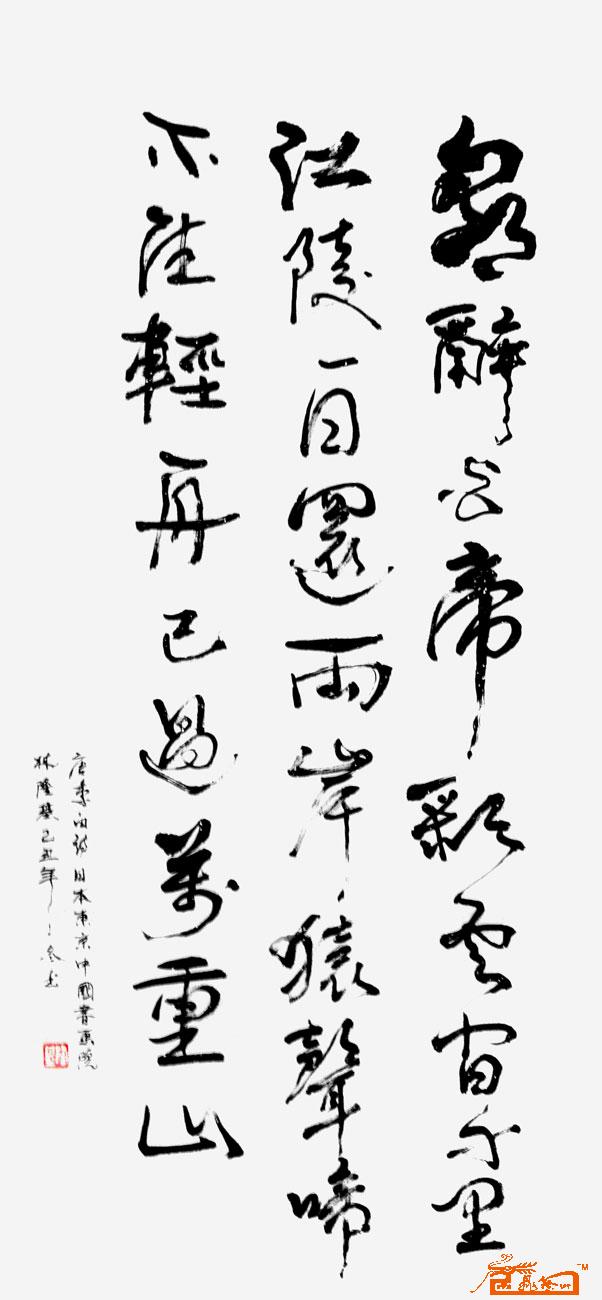 朝辭白帝彩雲間千里
江陵一日還兩岸猿聲啼
不住輕舟已過萬重山
唐李白詩日本東京中國書畫院
林隆己丑年之冬書